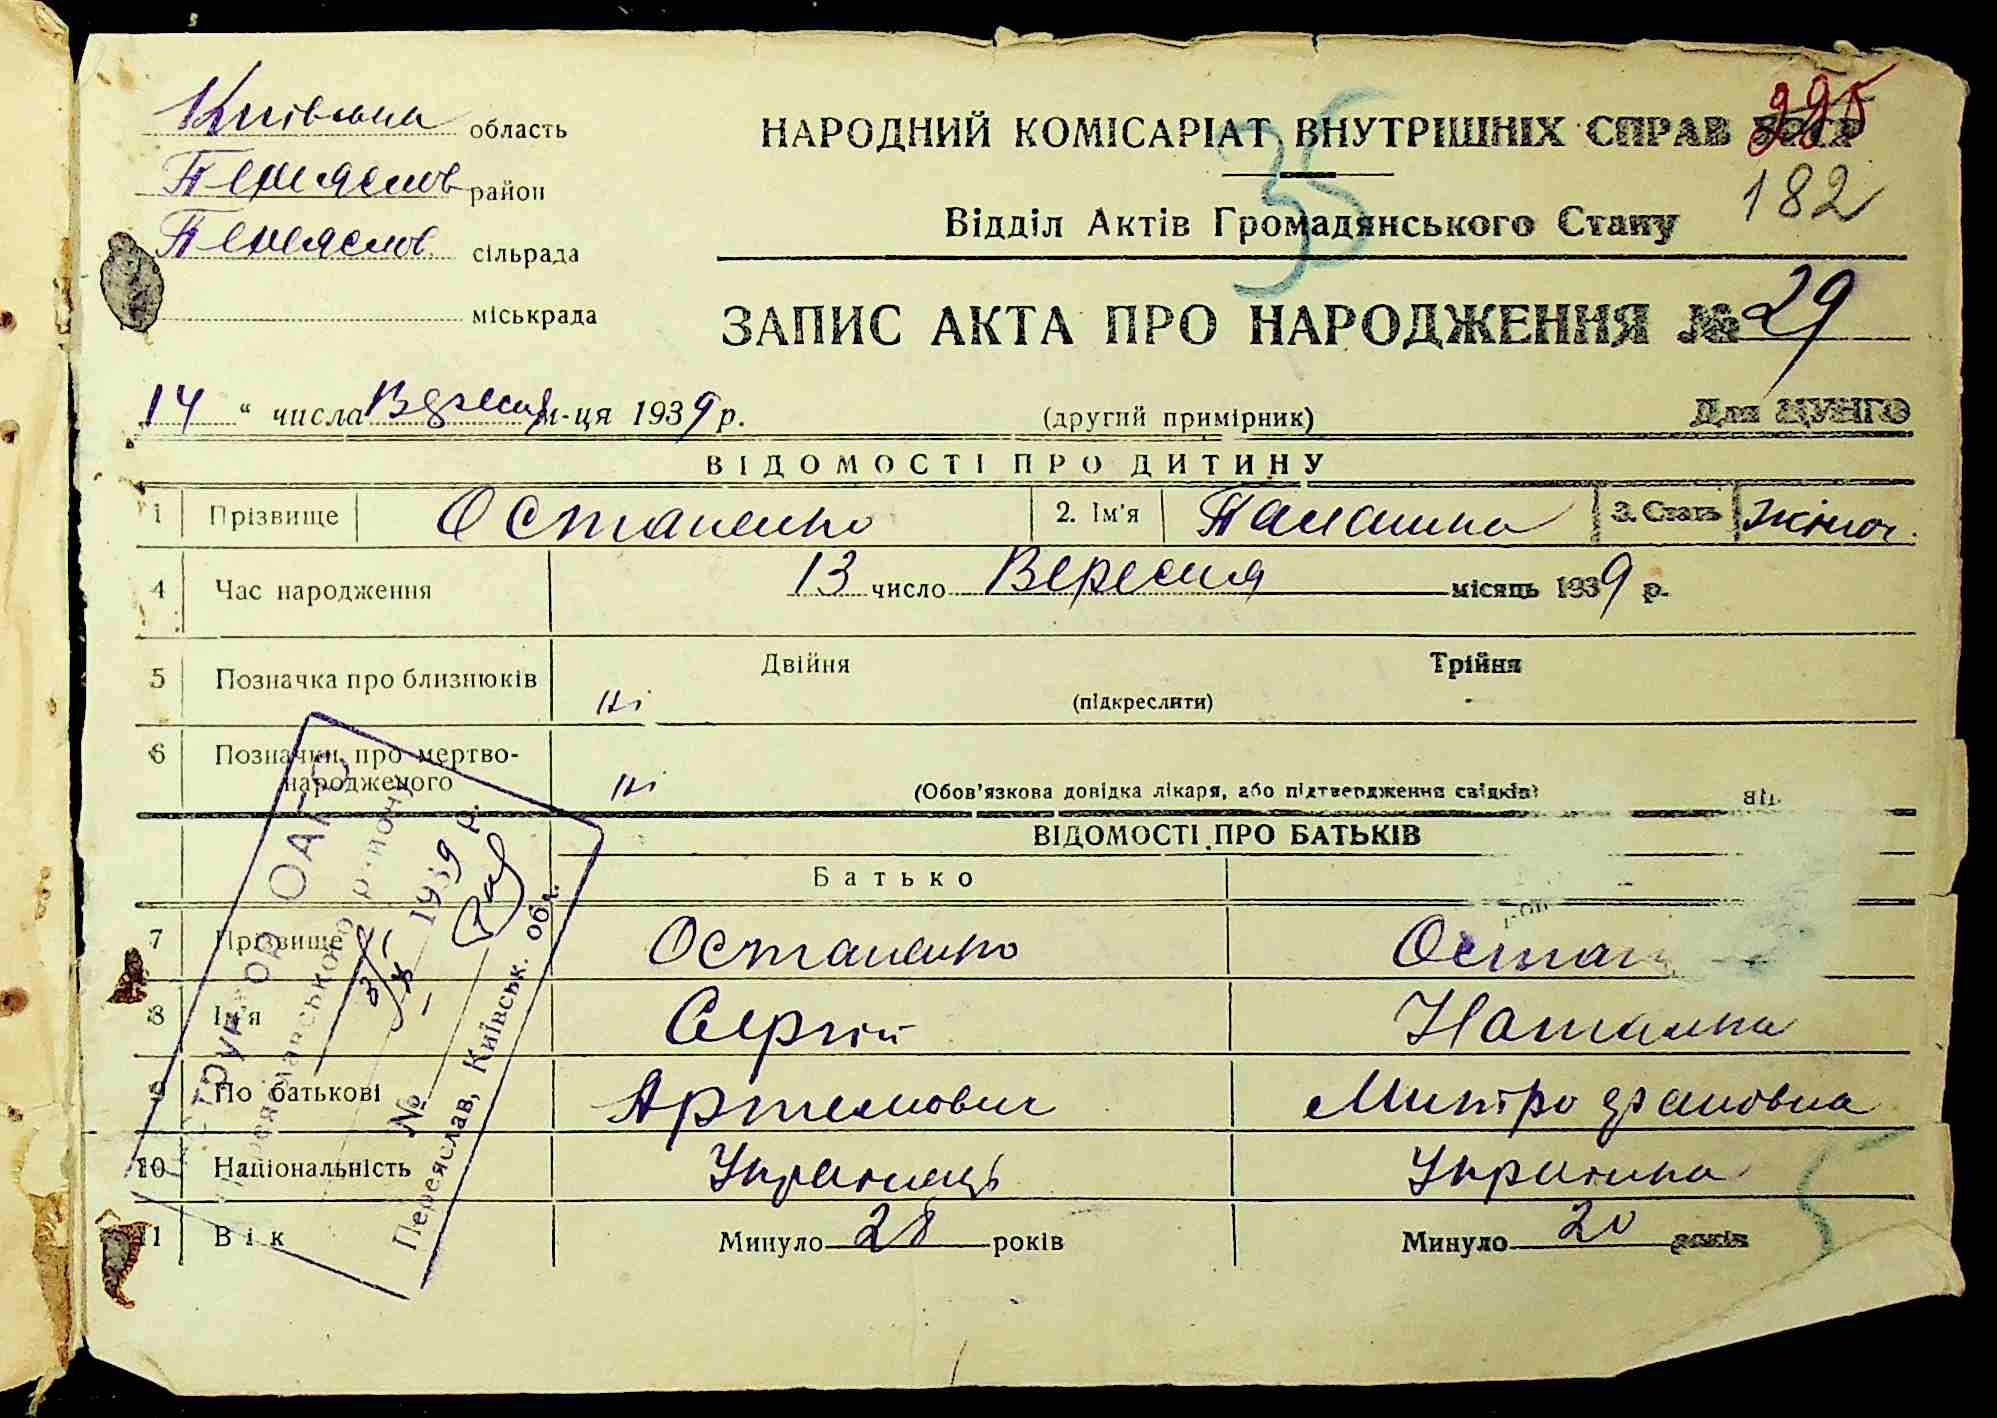 Київська область
Переяслов район
Переяслов сільрада
міськрада
НАРОДНИЙ КОМІСАРІАТ ВНУТРІШНІХ СПРАВ УССР
225
35
182
Відділ Актів Громадянського Стану
ЗАПИС АКТА ПРО НАРОДЖЕННЯ № 29
14 " числа Вересня м-ця 1939 р.
(другий примірник)
Для ЦУНГО
ВІДОМОСТІ ПРО ДИТИНУ
1 Прізвище Остапенко 2. Ім'я Палашка 3. Стать жіноч.
4 Час народження 13 число Вересня місяць 1939 р.
5 Позначка про близнюків ні Двійня Трійня
(підкреслити)
6 Позначки про мертво-
народженого ні (Обов'язкова довідка лікаря, або підтвердження свідків)
ВІДОМОСТІ ПРО БАТЬКІВ
Батько
7 Прізвище Остапенко Остап
8 Ім'я Сергій Наталка
9 По батькові Артемович Митрофановна
10 Національність Українець Українка
11 Вік Минуло 28 років Минуло 20 років
5
ОАГС
Переяславського району
1939 р.
№
Переяслав, Київськ. обл.